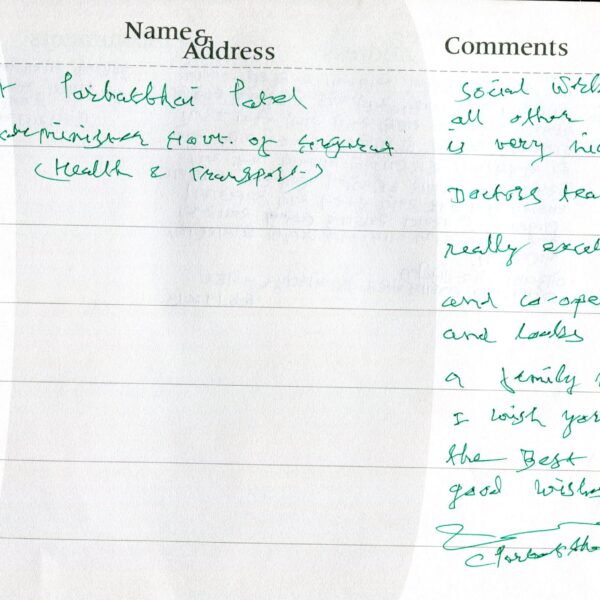 Name &
Address
Comments
Parbatbhai Patel
Minister Govt. of Gujarat
(Health & Transport)
Social
all other
is very
Doctors
really
and co-ope
and looks
a family
I wish you
the Best
good wishes